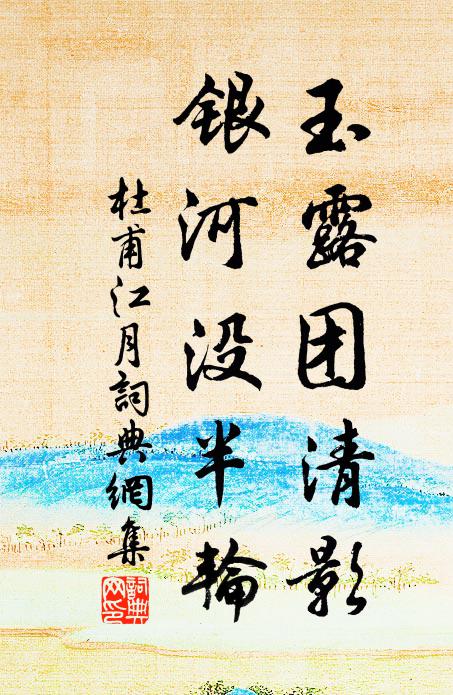 玉露团清影
银河没半輪
杜甫江月詞典網集